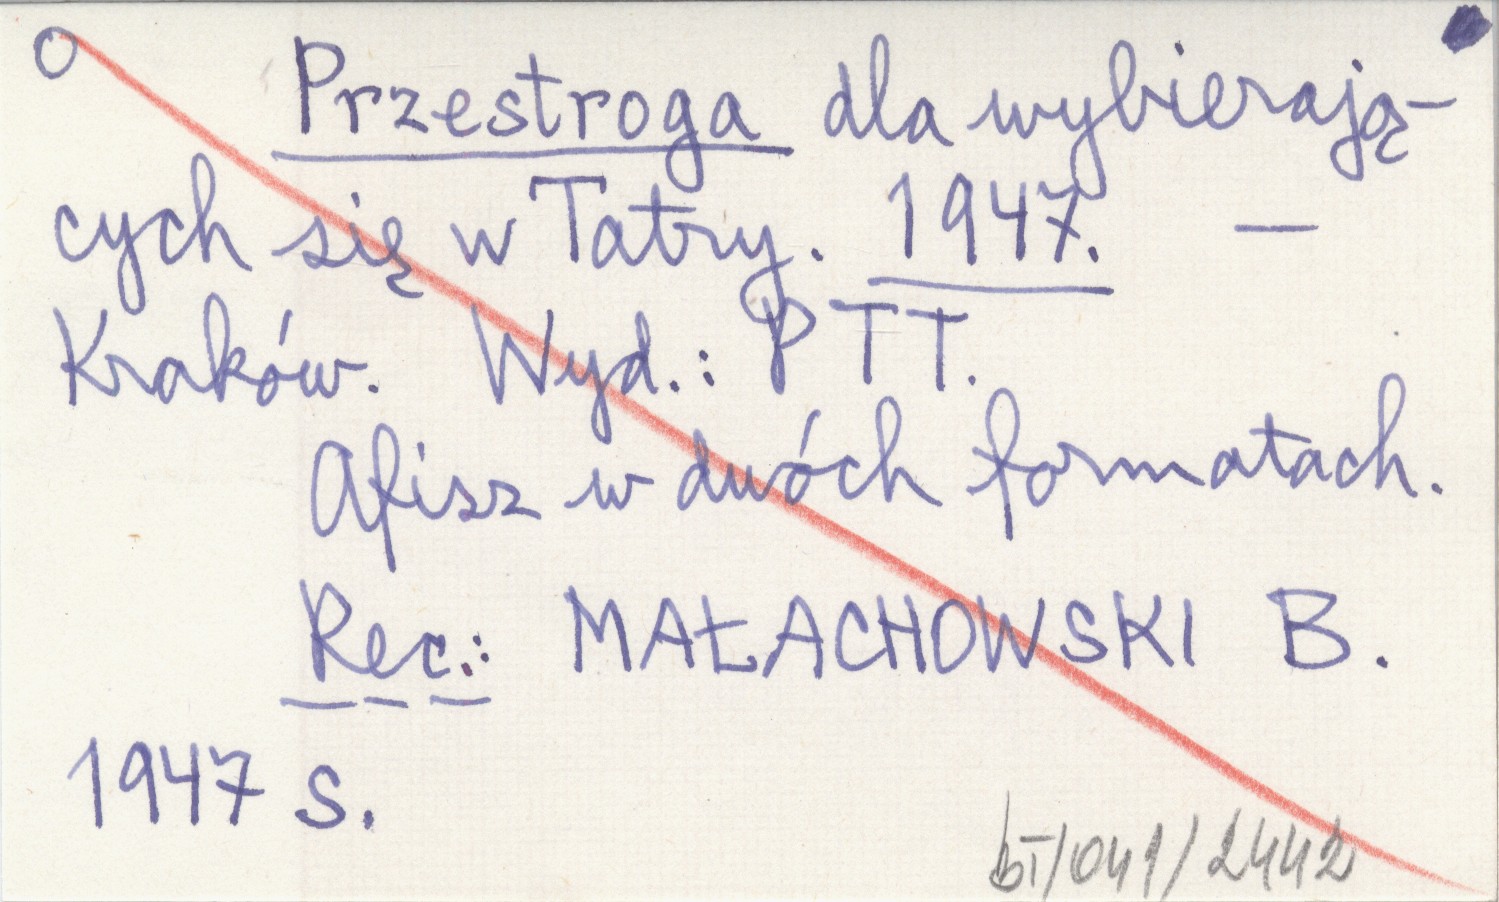 Przestroga dla wybierają-
cych się w Tatry. 1947. —
Kraków. Wyd.: PTT.
Afisz w dwóch formatach.
Rec.: MAŁACHOWSKI B.
1947 s.
bT/041/2442